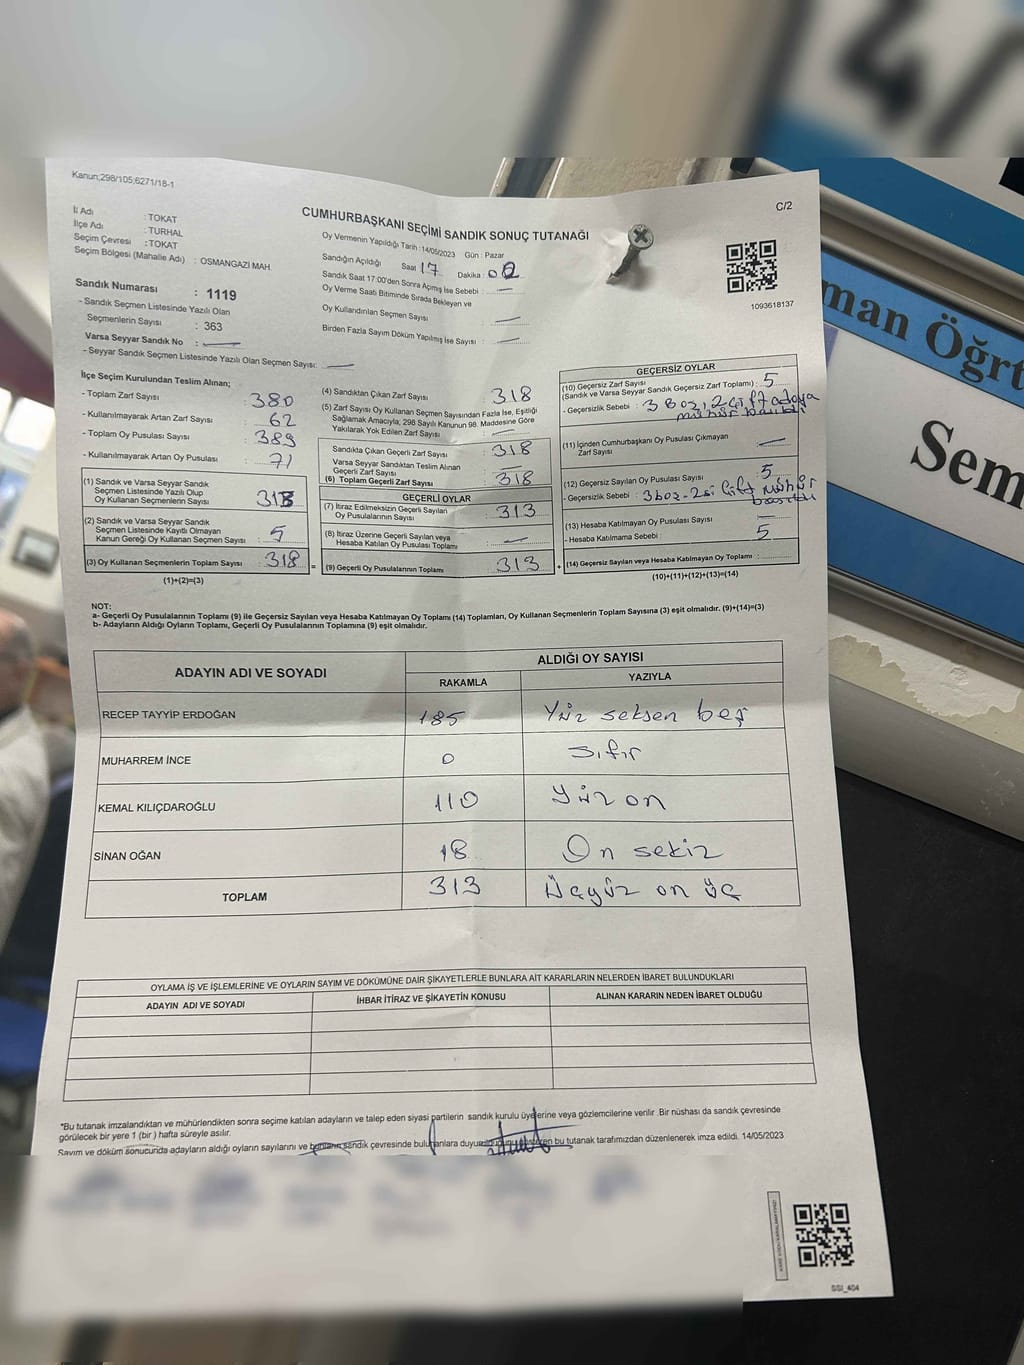 4/
Kanun;298/105;6271/18-1
C/2
İl Adı : TOKAT
İlçe Adı : TURHAL
Seçim Çevresi : TOKAT
Seçim Bölgesi (Mahalle Adı) : OSMANGAZİ MAH.
Sandık Numarası : 1119
- Sandık Seçmen Listesinde Yazılı Olan
Seçmenlerin Sayısı : 363
Varsa Seyyar Sandık No : —
- Seyyar Sandık Seçmen Listesinde Yazılı Olan Seçmen Sayısı: —
CUMHURBAŞKANI SEÇİMİ SANDIK SONUÇ TUTANAĞI
Oy Vermenin Yapıldığı Tarih : 14/05/2023 Gün : Pazar
Sandığın Açıldığı Saat 17 Dakika : 02
Sandık Saat 17:00'den Sonra Açmış İse Sebebi : —
Oy Verme Saati Bitiminde Sırada Bekleyen ve
Oy Kullandırılan Seçmen Sayısı : —
Birden Fazla Sayım Döküm Yapılmış İse Sayısı : —
1093618137
İlçe Seçim Kurulundan Teslim Alınan;
- Toplam Zarf Sayısı : 380
- Kullanılmayarak Artan Zarf Sayısı : 62
- Toplam Oy Pusulası Sayısı : 389
- Kullanılmayarak Artan Oy Pusulası : 71
(1) Sandık ve Varsa Seyyar Sandık
Seçmen Listesinde Yazılı Olup
Oy Kullanan Seçmenlerin Sayısı : 313
(2) Sandık ve Varsa Seyyar Sandık
Seçmen Listesinde Kayıtlı Olmayan
Kanun Gereği Oy Kullanan Seçmen Sayısı : 5
(3) Oy Kullanan Seçmenlerin Toplam Sayısı : 318
(1)+(2)=(3)
(4) Sandıktan Çıkan Zarf Sayısı : 318
(5) Zarf Sayısı Oy Kullanan Seçmen Sayısından Fazla İse, Eşitliği
Sağlamak Amacıyla; 298 Sayılı Kanunun 98. Maddesine Göre
Yakılarak Yok Edilen Zarf Sayısı : —
Sandıkta Çıkan Geçerli Zarf Sayısı : 318
Varsa Seyyar Sandıktan Teslim Alınan
Geçerli Zarf Sayısı : —
(6) Toplam Geçerli Zarf Sayısı : 318
GEÇERLİ OYLAR
(7) İtiraz Edilmeksizin Geçerli Sayılan
Oy Pusulalarının Sayısı : 313
(8) İtiraz Üzerine Geçerli Sayılan veya
Hesaba Katılan Oy Pusulası Toplamı : —
= (9) Geçerli Oy Pusulalarının Toplamı : 313
GEÇERSİZ OYLAR
(10) Geçersiz Zarf Sayısı
(Sandık ve Varsa Seyyar Sandık Geçersiz Zarf Toplamı) : 5
- Geçersizlik Sebebi : 3 Boş, 2 Çift adaya
mühür basıldı
(11) İçinden Cumhurbaşkanı Oy Pusulası Çıkmayan
Zarf Sayısı : —
(12) Geçersiz Sayılan Oy Pusulası Sayısı : 5
- Geçersizlik Sebebi : 3 boş - 2si Çift mühür
(13) Hesaba Katılmayan Oy Pusulası Sayısı : —
- Hesaba Katılmama Sebebi : 5
+ (14) Geçersiz Sayılan veya Hesaba Katılmayan Oy Toplamı :
(10)+(11)+(12)+(13)=(14)
NOT:
a- Geçerli Oy Pusulalarının Toplamı (9) ile Geçersiz Sayılan veya Hesaba Katılmayan Oy Toplamı (14) Toplamları, Oy Kullanan Seçmenlerin Toplam Sayısına (3) eşit olmalıdır. (9)+(14)=(3)
b- Adayların Aldığı Oyların Toplamı, Geçerli Oy Pusulalarının Toplamına (9) eşit olmalıdır.
ADAYIN ADI VE SOYADI ALDIĞI OY SAYISI
RAKAMLA YAZIYLA
RECEP TAYYİP ERDOĞAN 185 Yüz seksen beş
MUHARREM İNCE 0 Sıfır
KEMAL KILIÇDAROĞLU 110 Yüz on
SİNAN OĞAN 18 On sekiz
TOPLAM 313 Üçyüz on üç
OYLAMA İŞ VE İŞLEMLERİNE VE OYLARIN SAYIM VE DÖKÜMÜNE DAİR ŞİKAYETLERLE BUNLARA AİT KARARLARIN NELERDEN İBARET BULUNDUKLARI
ADAYIN ADI VE SOYADI İHBAR İTİRAZ VE ŞİKAYETİN KONUSU ALINAN KARARIN NEDEN İBARET OLDUĞU
"Bu tutanak imzalandıktan ve mühürlendikten sonra seçime katılan adayların ve talep eden siyasi partilerin sandık kurulu üyelerine veya gözlemcilerine verilir .Bir nüshası da sandık çevresinde
görülecek bir yere 1 (bir ) hafta süreyle asılır.
Sayım ve döküm sonucunda adayların aldığı oyların sayılarını ve bunların sandık çevresinde bulunanlara duyurulduğunu gösteren bu tutanak tarafımızdan düzenlenerek imza edildi. 14/05/2023
SSI_404
man Öğrt
Sem